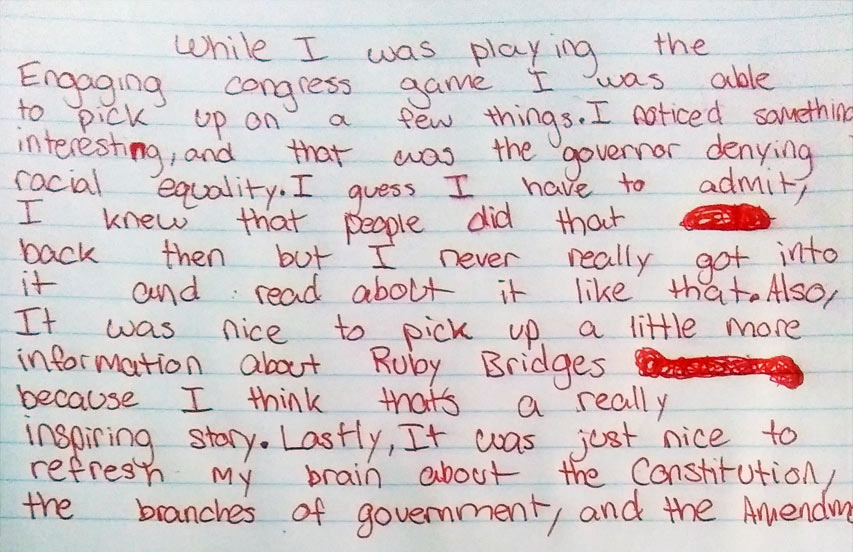 While I was playing the
Engaging congress game I was able
to pick up on a few things. I noticed something
interesting, and that was the governor denying
racial equality. I guess I have to admit,
I knew that people did that
back then but I never really got into
it and read about it like that. Also,
It was nice to pick up a little more
information about Ruby Bridges
because I think that's a really
inspiring story. Lastly, It was just nice to
refresh my brain about the Constitution,
the branches of government, and the Amendm